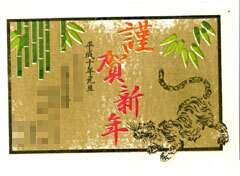 謹賀新年
平成十年元旦